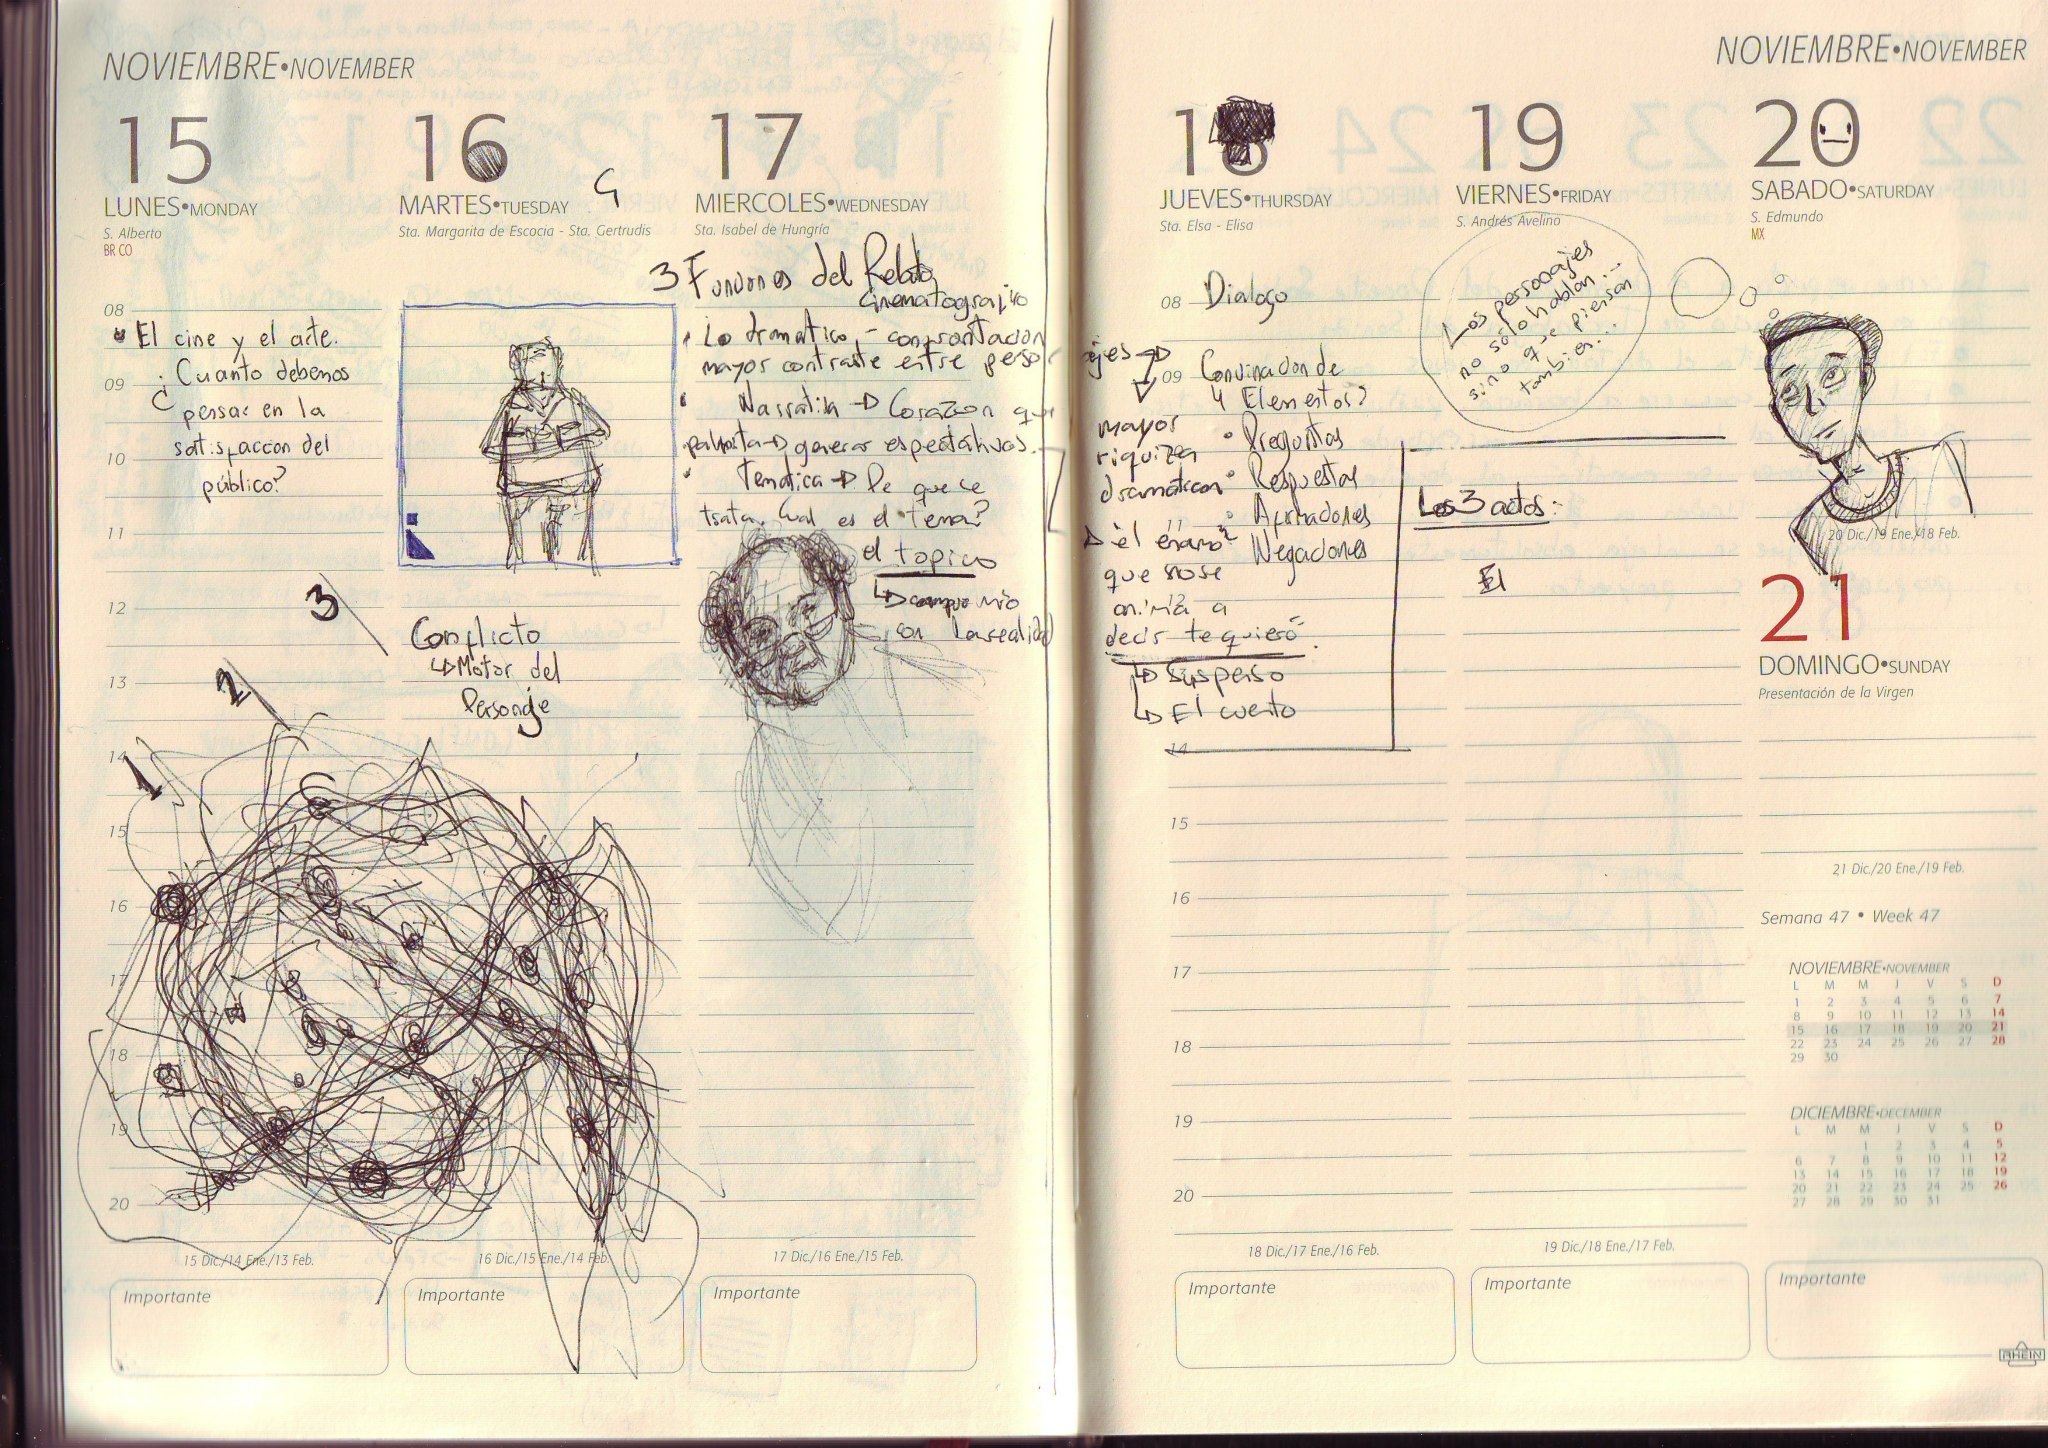 NOVIEMBRE•NOVEMBER
15
LUNES•MONDAY
S. Alberto
BR CO
08
• El cine y el arte.
¿Cuanto debemos
09
pensar en la
satisfaccion del
10
público?
11
12
13
14
15
16
17
18
19
20
1
2
3
15 Dic./14 Ene./13 Feb.
Importante
16
MARTES•TUESDAY
Sta. Margarita de Escocia - Sta. Gertrudis
Conflicto
↳ Motor del
Personaje
16 Dic./15 Ene./14 Feb.
Importante
17
MIERCOLES•WEDNESDAY
Sta. Isabel de Hungría
3 Funciones del Relato
Cinematografico
• Lo dramatico, - confrontacion
mayor contraste entre person
• Narrativa → Corazon que
palpita → generar espectativas.
• Tematica → De que se
trata. Cual es el tema?
el topico
↳
con la realidad
17 Dic./16 Ene./15 Feb.
Importante
NOVIEMBRE•NOVEMBER
18
JUEVES•THURSDAY
Sta. Elsa - Elisa
08
Dialogo
ajes →
09
Convinacion de
4 Elementos?
mayor
riquiza
dramatican
• Preguntas
• Respuestas
• Afirmaciones
Negaciones
→ el
que no se
anima a
decir te quiero".
↳ Suspenso
↳ El cuento
14
15
16
17
18
19
20
18 Dic./17 Ene./16 Feb.
Importante
19
VIERNES•FRIDAY
S. Andrés Avelino
Los personajes
no solo hablan...
sino que piensan
tambien...
Los 3 actos:
El
19 Dic./18 Ene./17 Feb.
Importante
20
SABADO•SATURDAY
S. Edmundo
MX
20 Dic./19 Ene./18 Feb.
21
DOMINGO•SUNDAY
Presentación de la Virgen
21 Dic./20 Ene./19 Feb.
Semana 47 • Week 47
NOVIEMBRE•NOVEMBER
L M M J V S D
1 2 3 4 5 6 7
8 9 10 11 12 13 14
15 16 17 18 19 20 21
22 23 24 25 26 27 28
29 30
DICIEMBRE•DECEMBER
L M M J V S D
1 2 3 4 5
6 7 8 9 10 11 12
13 14 15 16 17 18 19
20 21 22 23 24 25 26
27 28 29 30 31
Importante
RHEIN